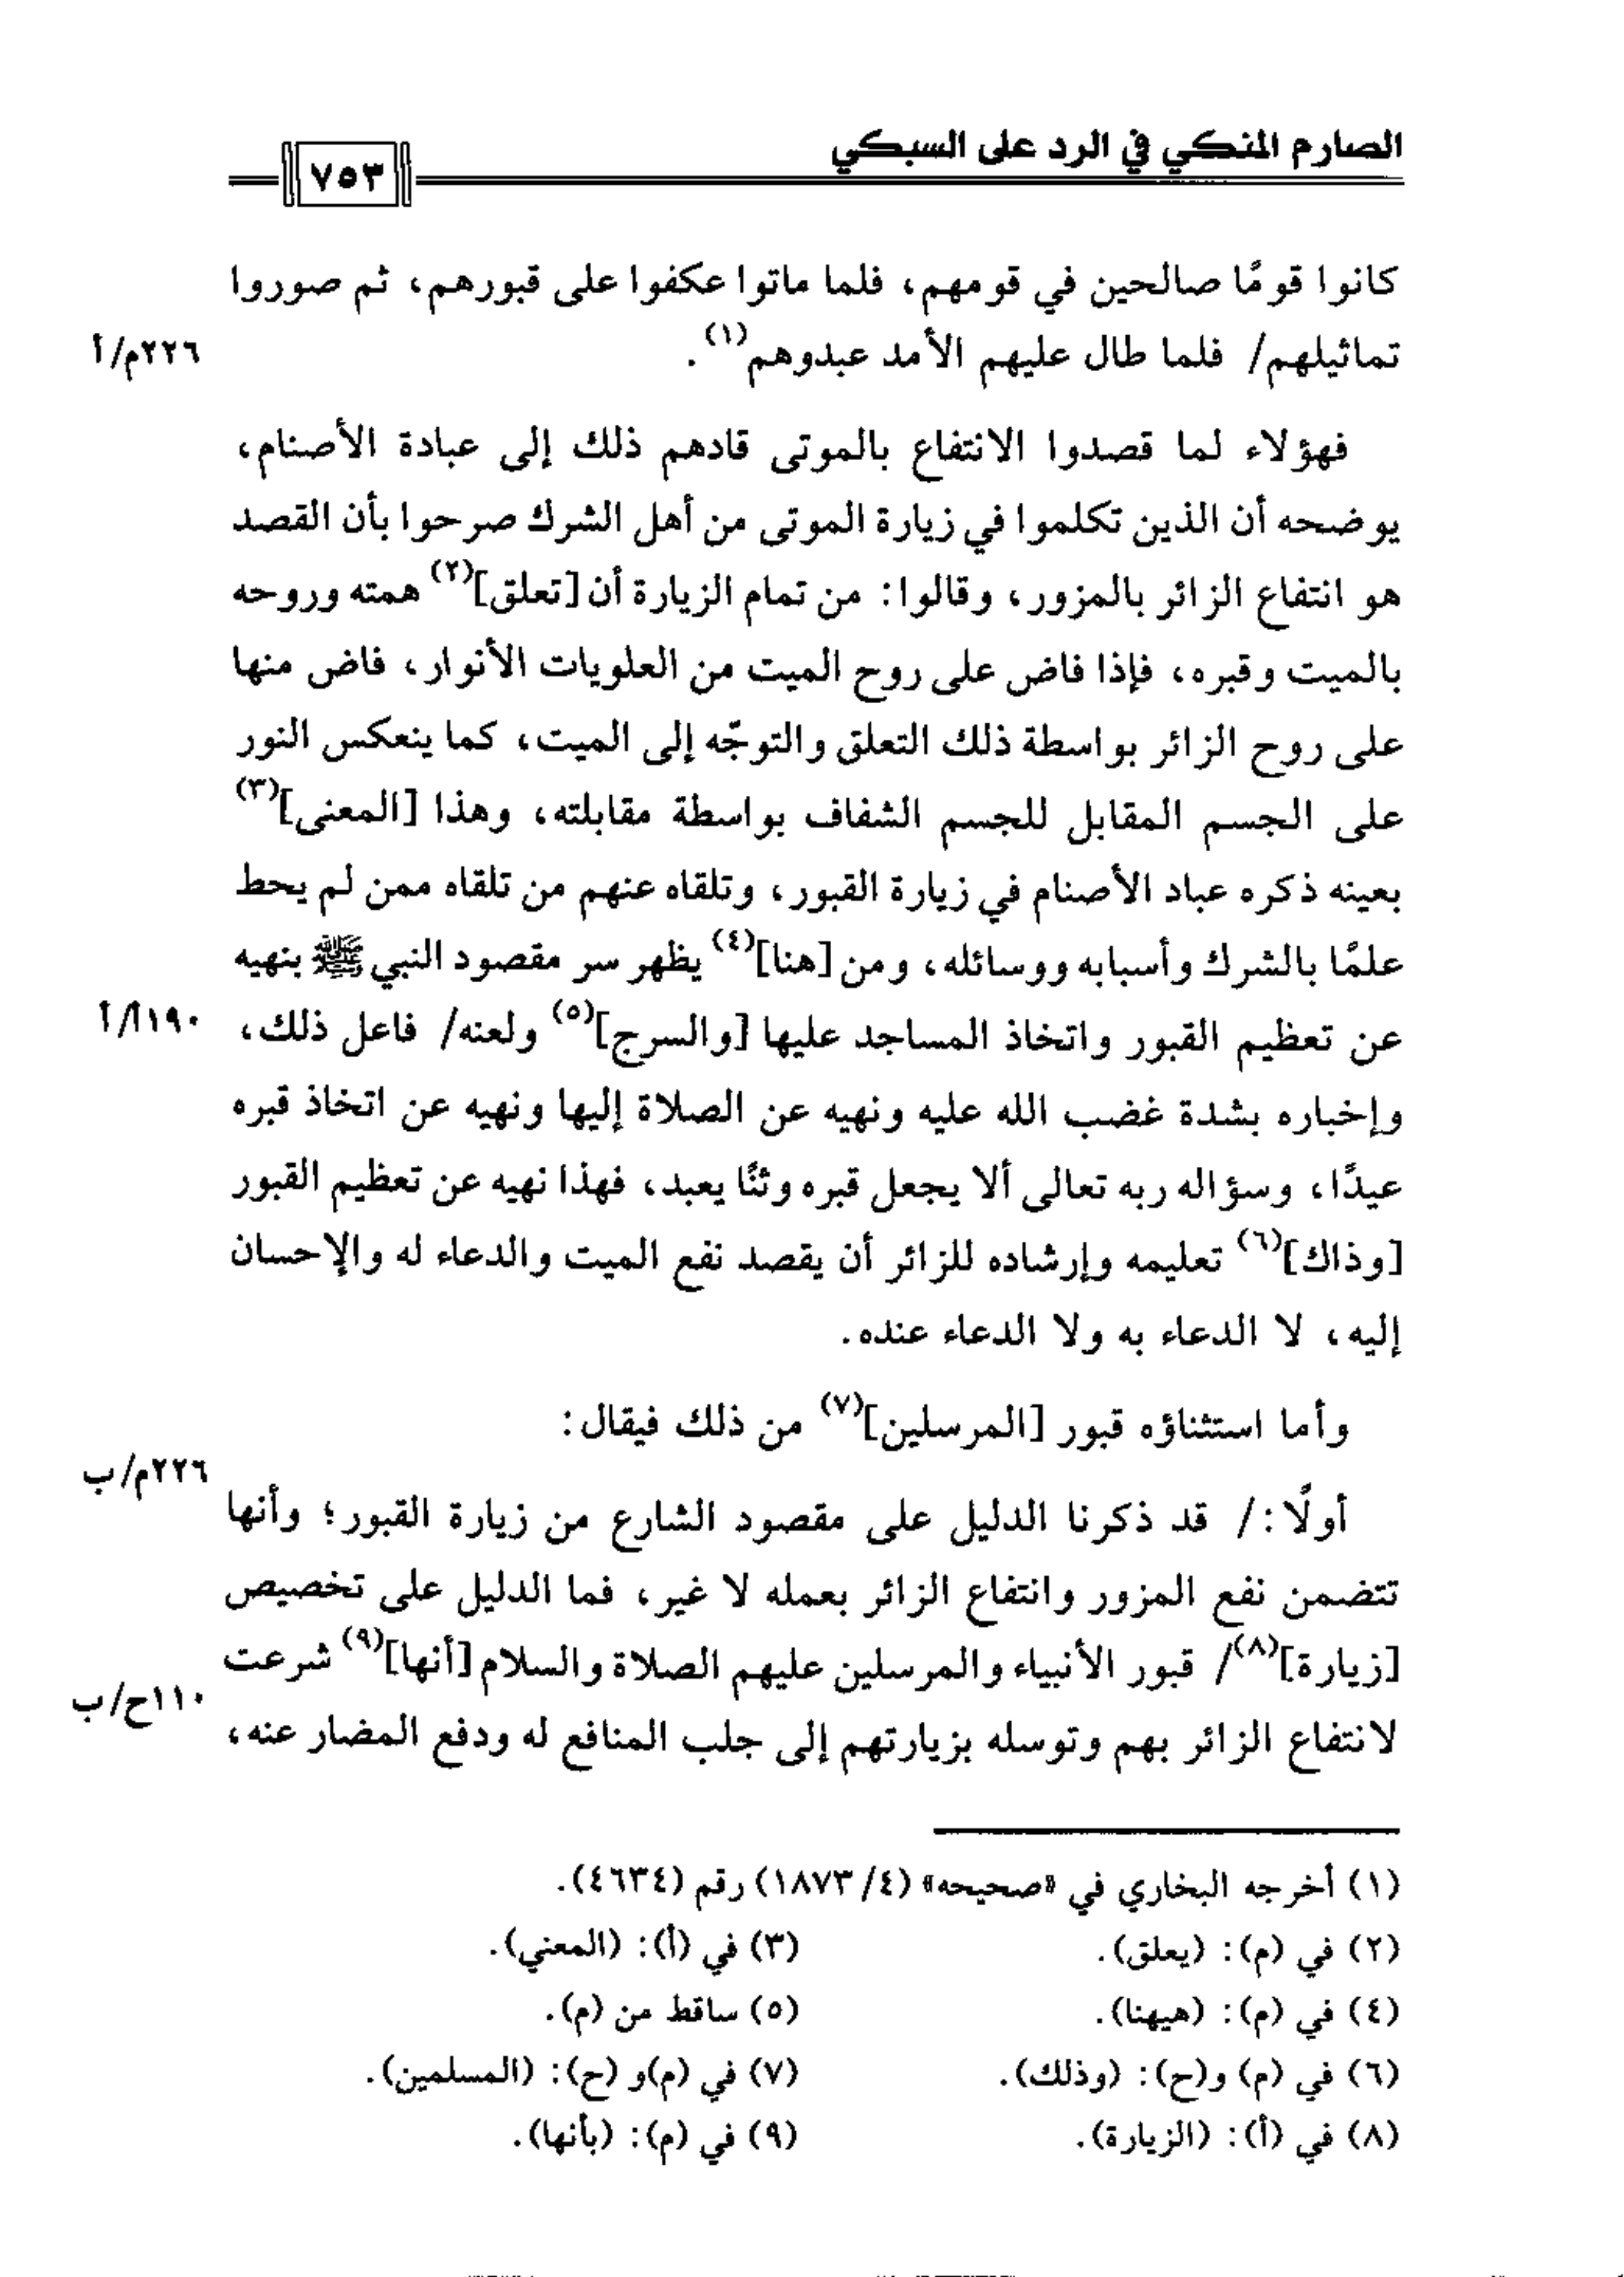 الصارم المنكي في الرد على السبكي
٧٥٣
كانوا قومًا صالحين في قومهم، فلما ماتوا عكفوا على قبورهم، ثم صوروا
تماثيلهم/ فلما طال عليهم الأمد عبدوهم(١).
٢٢٦م/أ
فهؤلاء لما قصدوا الانتفاع بالموتى قادهم ذلك إلى عبادة الأصنام،
يوضحه أن الذين تكلموا في زيارة الموتى من أهل الشرك صرحوا بأن القصد
هو انتفاع الزائر بالمزور، وقالوا: من تمام الزيارة أن [تعلق](٢) همته وروحه
بالميت وقبره، فإذا فاض على روح الميت من العلويات الأنوار، فاض منها
على روح الزائر بواسطة ذلك التعلق والتوجّه إلى الميت، كما ينعكس النور
على الجسم المقابل للجسم الشفاف بواسطة مقابلته، وهذا [المعنى](٣)
بعينه ذكره عباد الأصنام في زيارة القبور، وتلقاه عنهم من تلقاه ممن لم يحط
علمًا بالشرك وأسبابه ووسائله، ومن [هنا](٤) يظهر سر مقصود النبي ﷺ بنهيه
عن تعظيم القبور واتخاذ المساجد عليها [والسرج](٥) ولعنه/ فاعل ذلك،
١٩٠أ/أ
وإخباره بشدة غضب الله عليه ونهيه عن الصلاة إليها ونهيه عن اتخاذ قبره
عيدًا، وسؤاله ربه تعالى ألا يجعل قبره وثنًا يعبد، فهذا نهيه عن تعظيم القبور
[وذاك](٦) تعليمه وإرشاده للزائر أن يقصد نفع الميت والدعاء له والإحسان
إليه، لا الدعاء به ولا الدعاء عنده.
وأما استثناؤه قبور [المرسلين](٧) من ذلك فيقال:
٢٢٦م/ب
أولًا:/ قد ذكرنا الدليل على مقصود الشارع من زيارة القبور؛ وأنها
تتضمن نفع المزور وانتفاع الزائر بعمله لا غير، فما الدليل على تخصيص
[زيارة](٨)/ قبور الأنبياء والمرسلين عليهم الصلاة والسلام [أنها](٩) شرعت
١١٠ح/ب
لانتفاع الزائر بهم وتوسله بزيارتهم إلى جلب المنافع له ودفع المضار عنه،
(١) أخرجه البخاري في «صحيحه» (٤/ ١٨٧٣) رقم (٤٦٣٤).
(٢) في (م): (يعلق). (٣) في (أ): (المعني).
(٤) في (م): (هيهنا). (٥) ساقط من (م).
(٦) في (م) و(ح): (وذلك). (٧) في (م)و (ح): (المسلمين).
(٨) في (أ): (الزيارة). (٩) في (م): (بأنها).